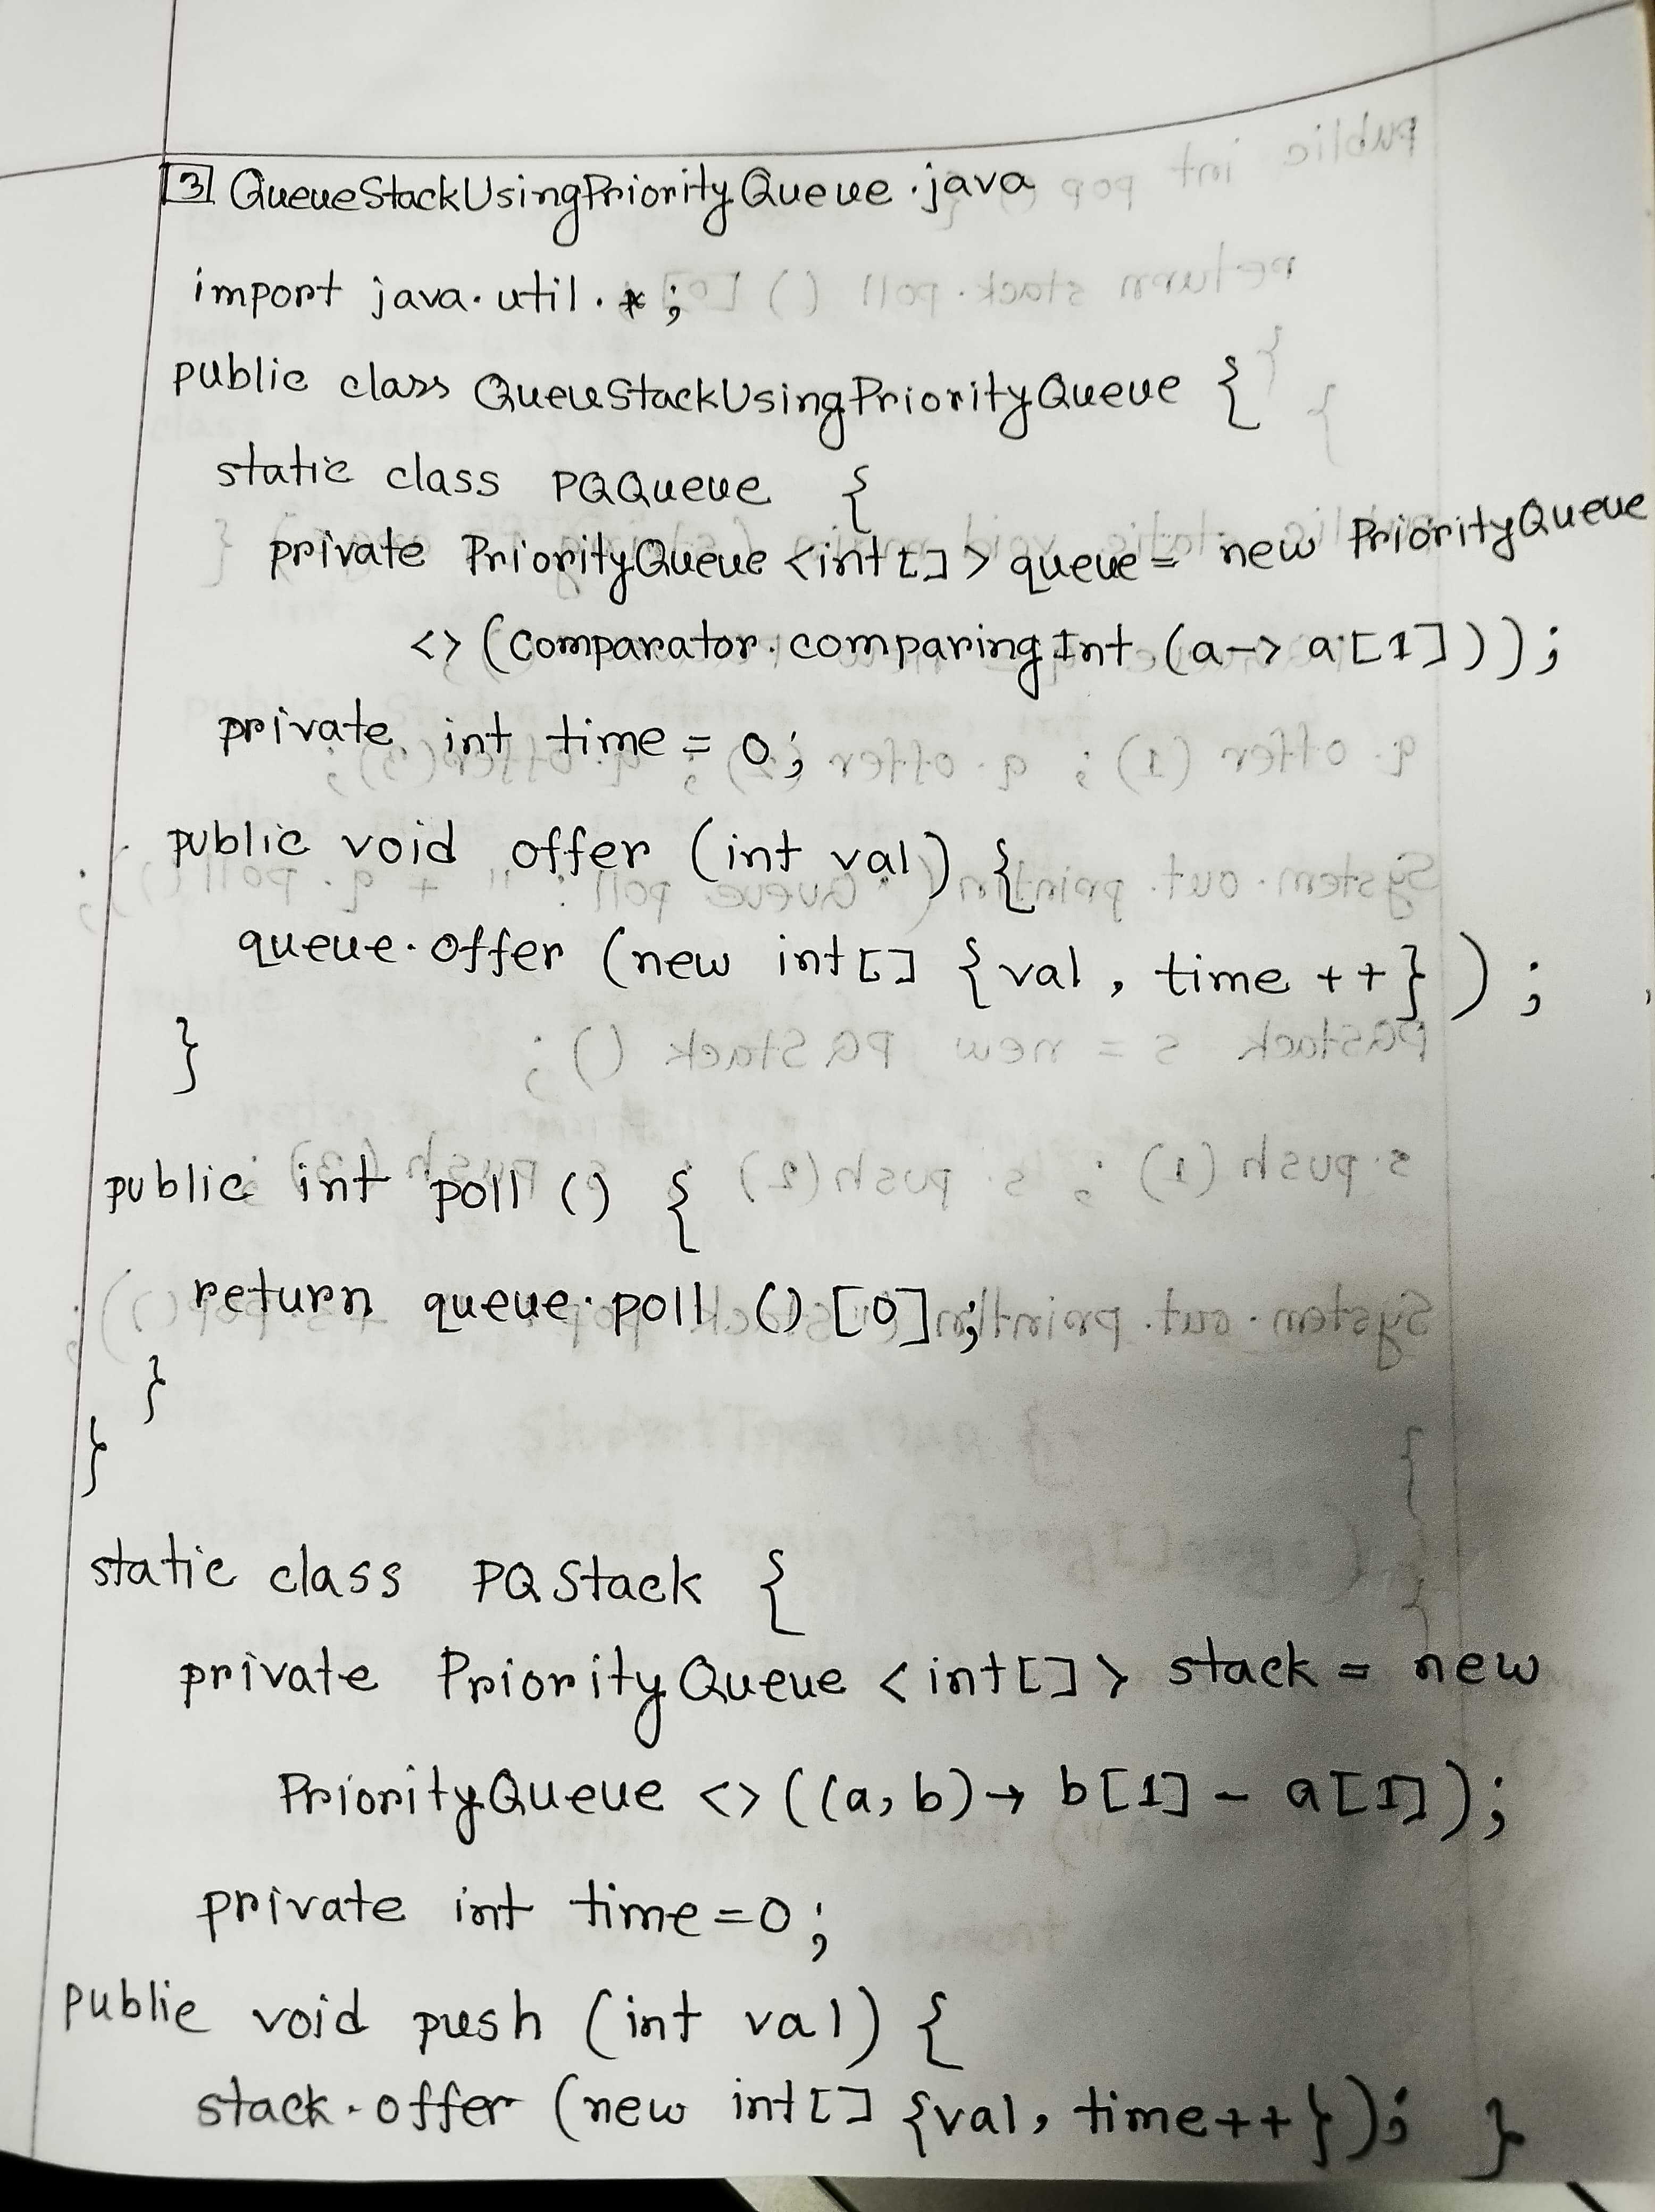 [3] QueueStackUsingPriorityQueue.java
import java.util.*;
public class QueueStackUsingPriorityQueue {
static class PQQueue {
private PriorityQueue <int[]> queue = new PriorityQueue
<> (Comparator.comparingInt (a-> a[1]));
private int time = 0;
public void offer (int val) {
queue.offer (new int[] {val, time ++});
}
public int poll () {
return queue.poll () [0];
}
}
static class PQStack {
private PriorityQueue <int[]> stack = new
PriorityQueue <> ((a,b)→ b[1] - a[1]);
private int time=0;
public void push (int val) {
stack.offer (new int[] {val, time++}); }